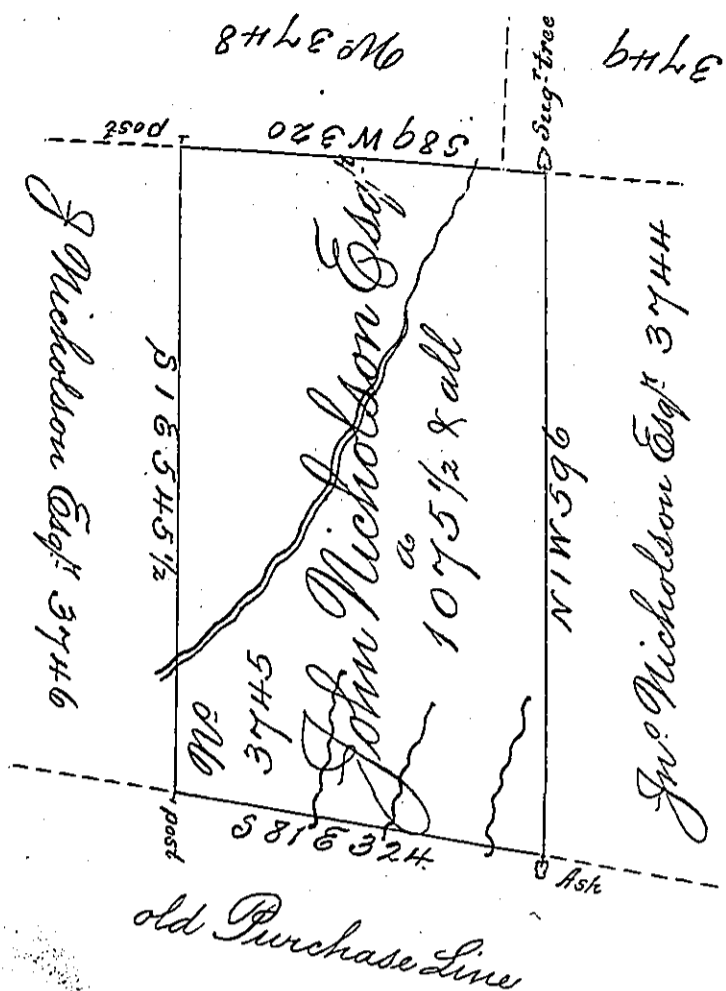 No 3748
3749
post
S89W320
Sugr tree
J Nicholson Esqr 3746
S 1 E 545 1/2
John Nicholson Esqr
a
1075 1/2 & all
No
3745
N 1 W 596
Jno Nicholson Esqr 3744
post
S 81 E 324.
Ash
old Purchase Line